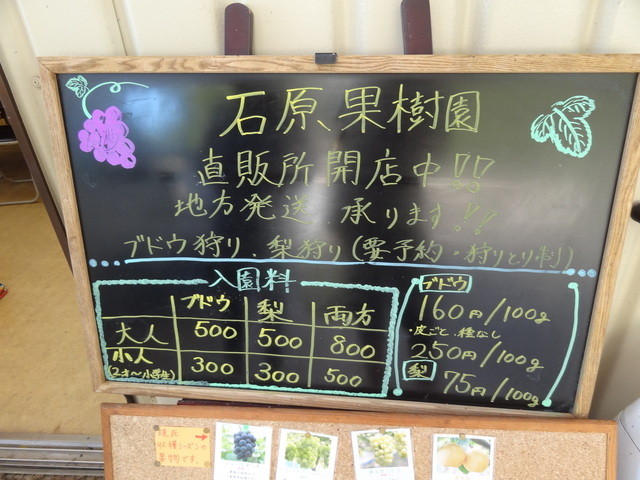 石原果樹園
直販所開店中!!
地方発送 承ります!!
ブドウ狩り、梨狩り(要予約・狩りとり制)
入園料
ブドウ 梨 両方
大人 500 500 800
小人
(2才~小学生) 300 300 500
ブドウ
160円/100g
・皮ごと、種なし
250円/100g
梨
75円/100g
現在
収穫シーズンの
果物です。